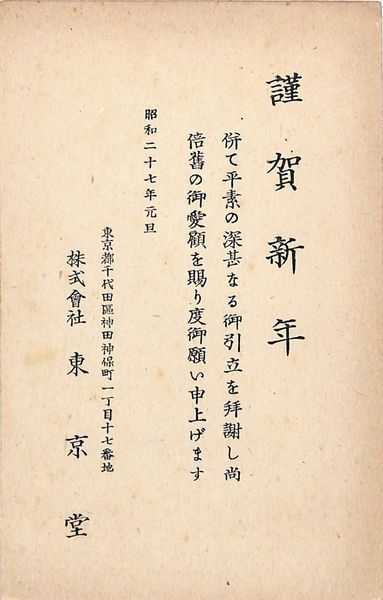 謹賀新年
併て平素の深甚なる御引立を拜謝し尚
倍舊の御愛顧を賜り度御願い申上げます
昭和二十七年元旦
東京都千代田區神田神保町一丁目十七番地
株式會社 東京堂